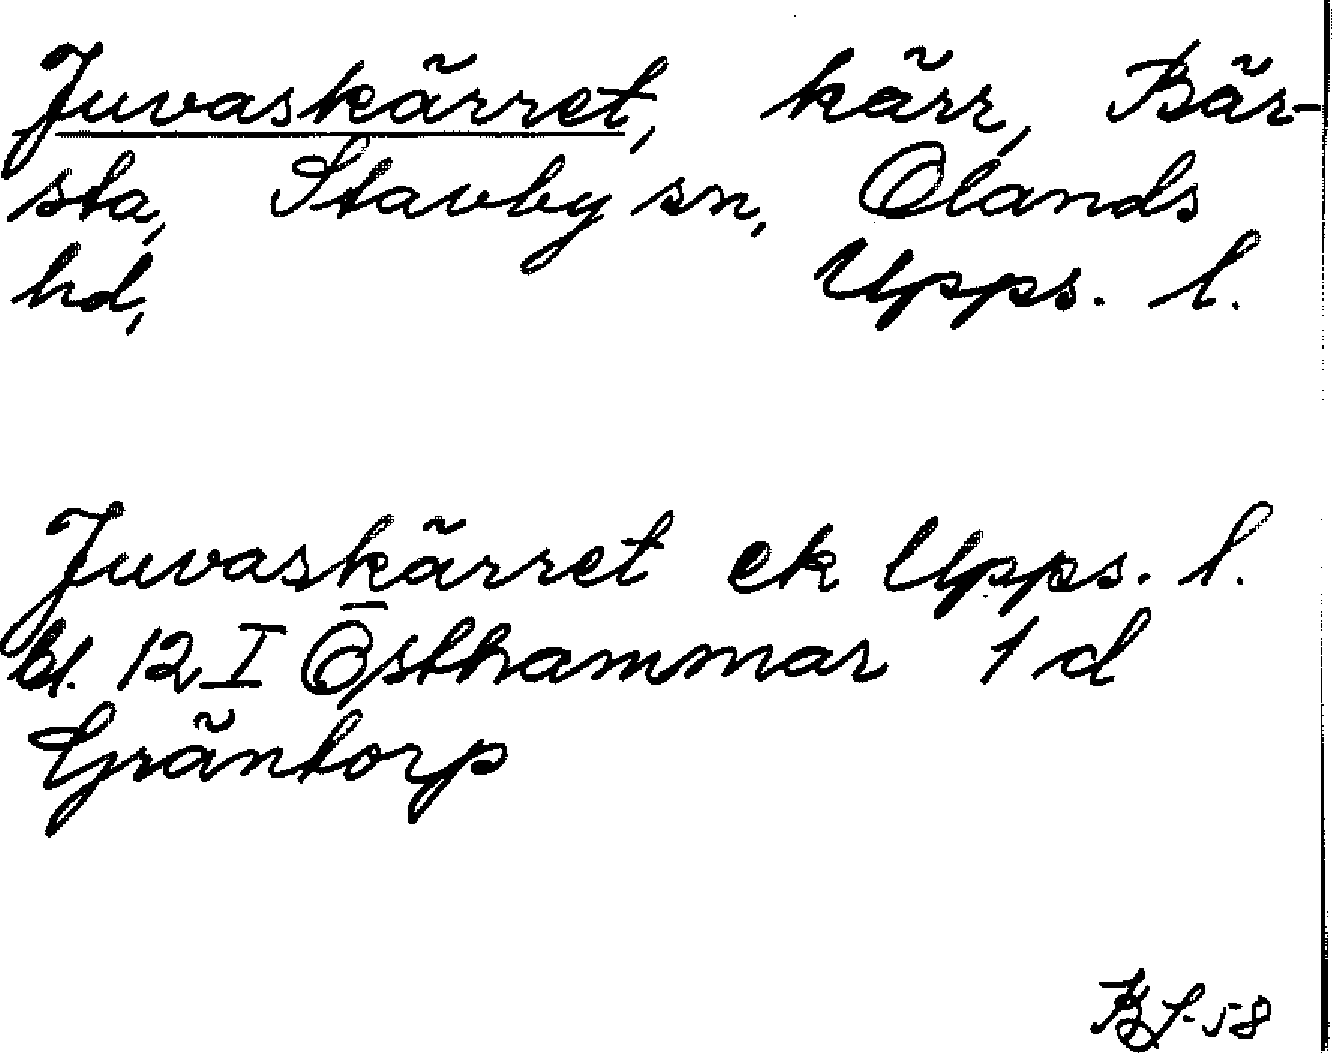 Juvaskärret, kärr, Bär-
sta, Stavby sn, Olands
hd, Upps. l.
Juvaskärret ek Upps. l.
bl. 12 I Östhammar 1 d
Gräntorp
BJ-58